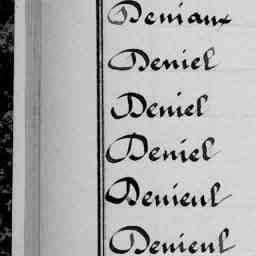 Deniaux
Deniel
Deniel
Deniel
Denieul
Denieul